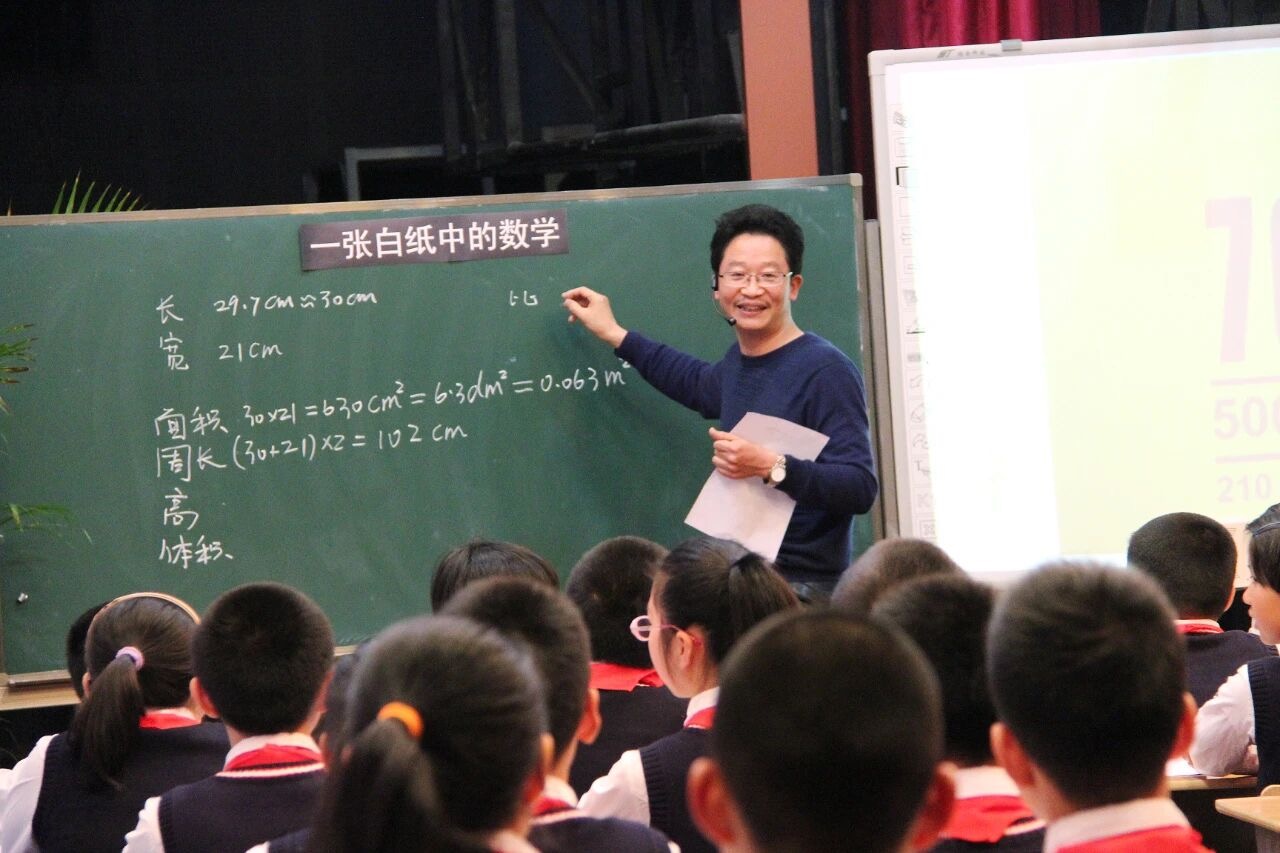 一张白纸中的数学
长 29.7cm≈30cm
比
宽 21cm
面积 30×21=630cm²=6.3dm²=0.063m²
周长 (30+21)×2=102cm
高
体积
500
210